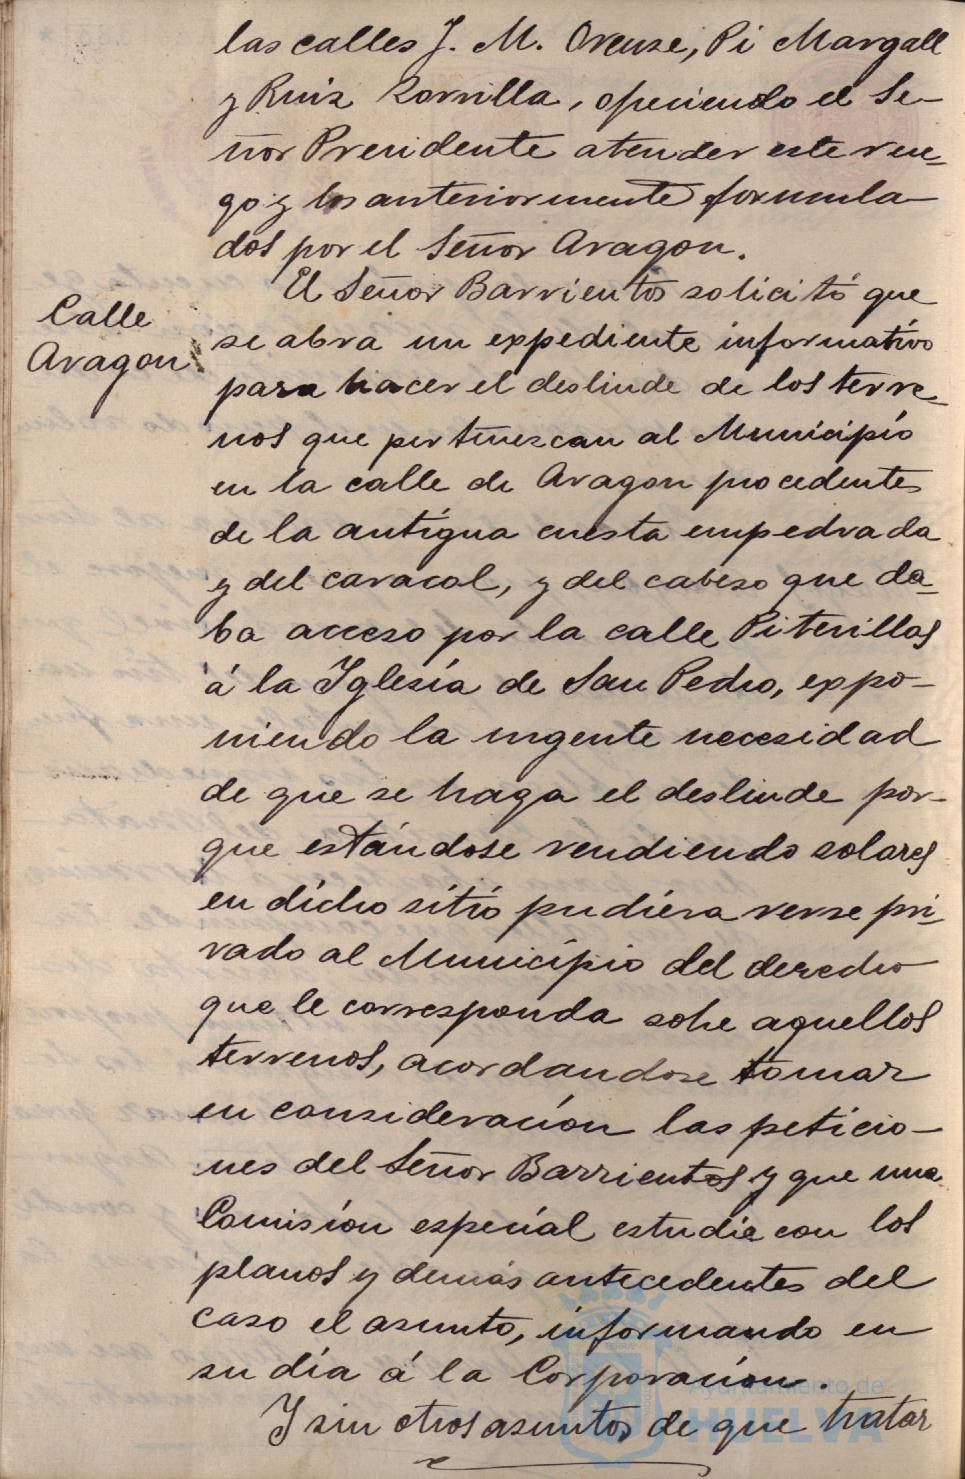 las calles J. M. Orense, Pi Margall
y Ruiz Zorrilla, ofreciendo el Se-
ñor Presidente atender este rue-
go y los anteriormente formula-
dos por el Señor Aragon.
Calle
Aragon
El Señor Barrientos solicitó que
se abra un expediente informativo
para hacer el deslinde de los terre-
nos que pertenezcan al Municipio
en la calle de Aragon procedentes
de la antigua cuesta empedrada
y del caracol, y del cabezo que da-
ba acceso por la calle Piterillas
á la Iglesia de San Pedro, expo-
niendo la urgente necesidad
de que se haga el deslinde por-
que estándose vendiendo solares
en dicho sitio pudiera verse pri-
vado al Municipio del derecho
que le corresponda sobre aquellos
terrenos, acordandose tomar
en consideración las peticio-
nes del Señor Barrientos y que una
Comisión especial estudie con los
planos y demás antecedentes del
caso el asunto, informando en
su día á la Corporación.
Y sin otros asuntos de que tratar
Ayuntamiento de
HUELVA